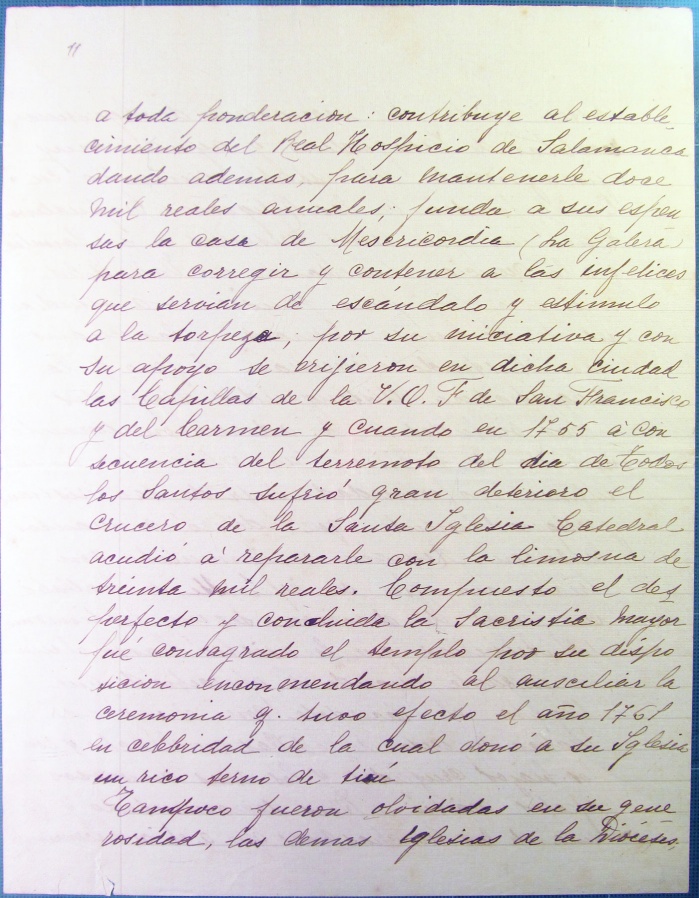 11
a toda ponderacion: contribuye al estable
cimiento del Real Hospicio de Salamanca
dando ademas, para mantenerle doce
mil reales anuales; funda a sus espen
sas la casa de Mesericordia (La Galera)
para corregir y contener a las infelices
que servian de escándalo y estimulo
a la torpeza; por su iniciativa y con
su apoyo se erijieron en dicha ciudad
las Capillas de la V.O.F de San Francisco
y del Carmen y cuando en 1755 á con
secuencia del terremoto del dia de Todos
los Santos sufrió gran deterioro el
crucero de la Santa Iglesia Catedral
acudió á repararle con la limosna de
treinta mil reales. Compuesto el des
perfecto y concluida la Sacristia Mayor
fué consagrado el templo por su dispo
sicion enconmendando al ausciliar la
ceremonia q. tuvo efecto el año 1761
en celebridad de la cual donó a su Iglesia
un rico terno de tisú
Tampoco fueron olvidadas en su gene
rosidad, las demas iglesias de la Diócesis,